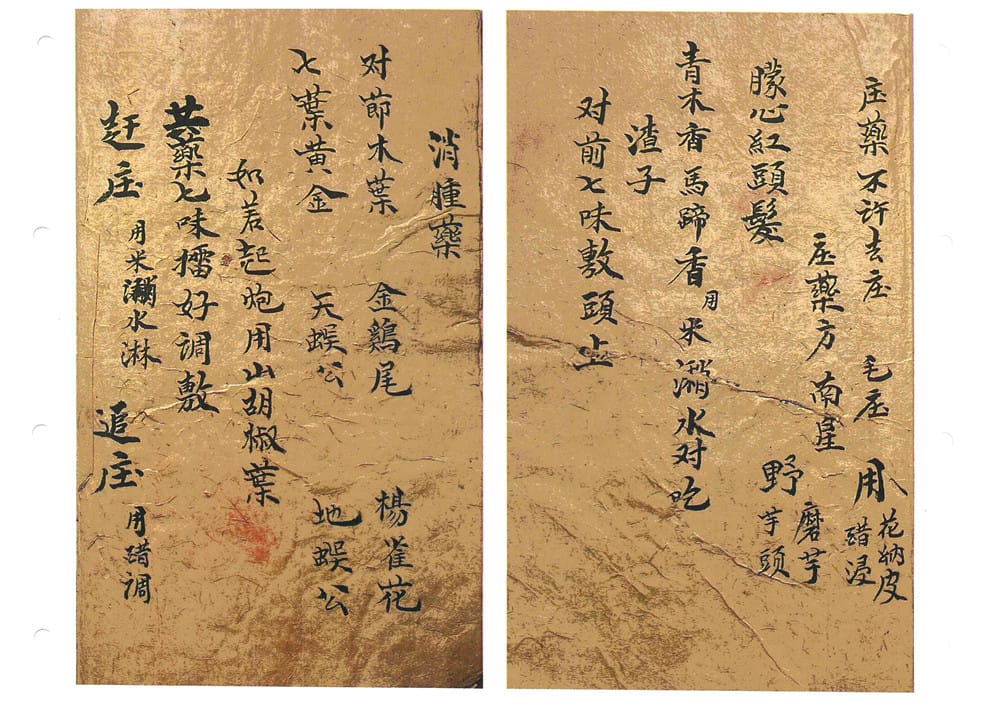 庒藥不許去庒 毛庒 用 花納皮
醋浸
庒藥方 南星 磨芋
朦心紅頭髮 野芋頭
青木香馬蹄香用米潲水对吃
渣子
对前七味敷頭上
消腫藥
对節木葉 金鷄尾 楊雀花
七葉黄金 天蜈公 地蜈公
如若起炮用山胡椒葉
共藥七味擂好调敷
赶庒 用米潲水淋 追庒 用醋调